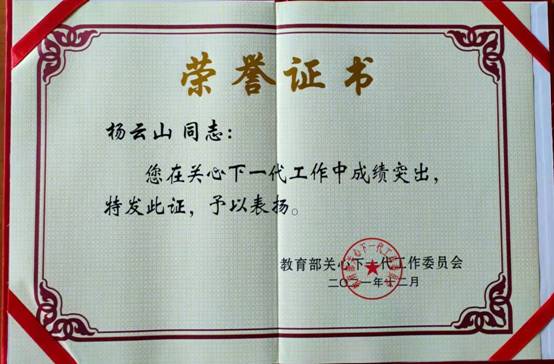 荣誉证书
杨云山 同志：
您在关心下一代工作中成绩突出，
特发此证，予以表扬。
教育部关心下一代工作委员会
二〇二一年十二月